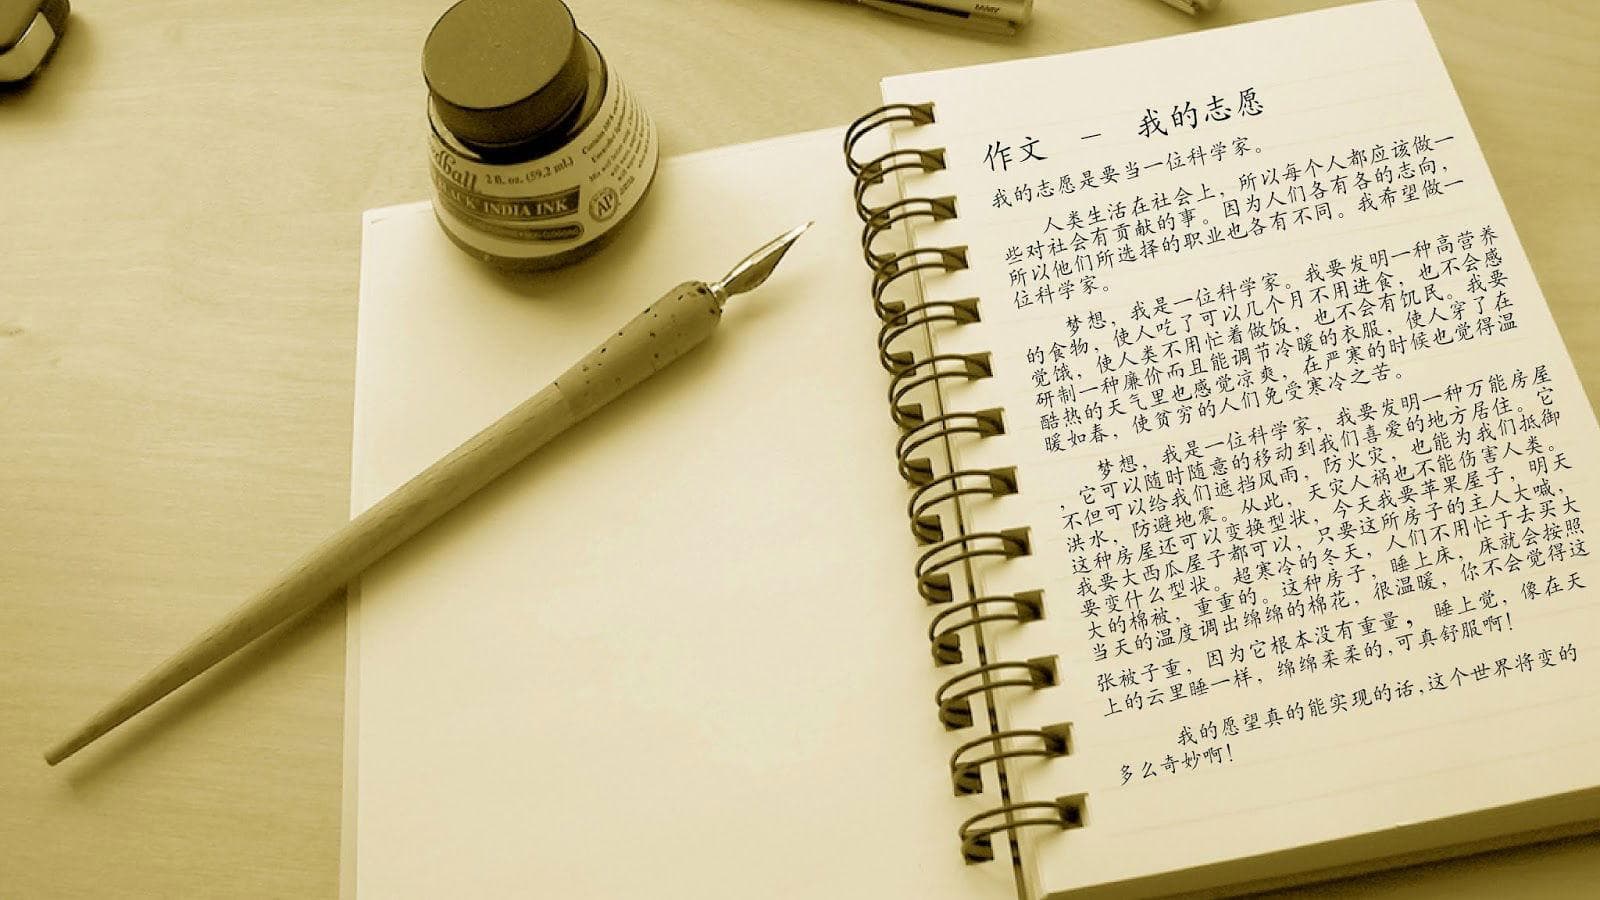 LAMY
2 fl. oz. (59.2 ml.)
BLACK INDIA INK
AP
作文 - 我的志愿
我的志愿是要当一位科学家。
人类生活在社会上，所以每个人都应该做一
些对社会有贡献的事。因为人们各有各的志向，
所以他们所选择的职业也各有不同。我希望做一
位科学家。
梦想，我是一位科学家。我要发明一种高营养
的食物，使人吃了可以几个月不用进食，也不会感
觉饿，使人类不用忙着做饭，也不会有饥民。我要
研制一种廉价而且能调节冷暖的衣服，使人穿了在
酷热的天气里也感觉凉爽，在严寒的时候也觉得温
暖如春，使贫穷的人们免受寒冷之苦。
梦想，我是一位科学家，我要发明一种万能房屋
，它可以随时随意的移动到我们喜爱的地方居住。它
不但可以给我们遮挡风雨，防火灾，也能为我们抵御
洪水，防避地震。从此，天灾人祸也不能伤害人类。
这种房屋还可以变换型状，今天我要苹果屋子，明天
我要大西瓜屋子都可以，只要这所房子的主人大喊，
要变什么型状。超寒冷的冬天，人们不用忙于去买大
大的棉被，重重的。这种房子，睡上床，床就会按照
当天的温度调出绵绵的棉花，很温暖，你不会觉得这
张被子重，因为它根本没有重量，睡上觉，像在天
上的云里睡一样，绵绵柔柔的,可真舒服啊!
我的愿望真的能实现的话,这个世界将变的
多么奇妙啊!